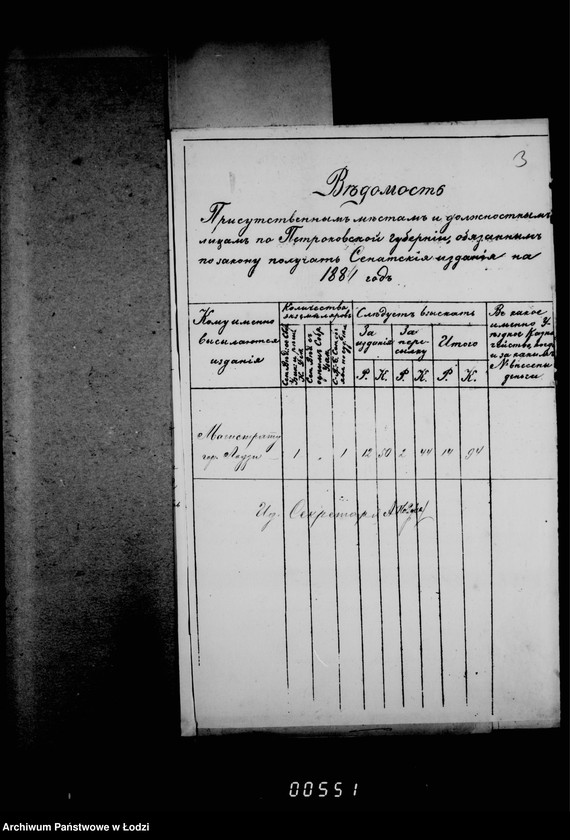 3
Вѣдомость
Присутственнымъ мѣстамъ и должностнымъ
лицамъ по Петроковской губерніи, обязаннымъ
по закону получать Сенатскія изданія на
1884 годъ
Кому именно
высылаются
изданія
Количество
экземпляровъ
Слѣдуетъ взыскать
За
изданія
За
пере-
сылку
Итого
Р. К. Р. К. Р. К.
Въ какое
именно У
ѣздное Казна
чейство
и за какимъ
№ внесены
деньги
Магистрату
гор. Лодзи 1 „ 1 12 50 2 44 14 94
Ид. Секретаря
00551
Archiwum Państwowe w Łodzi